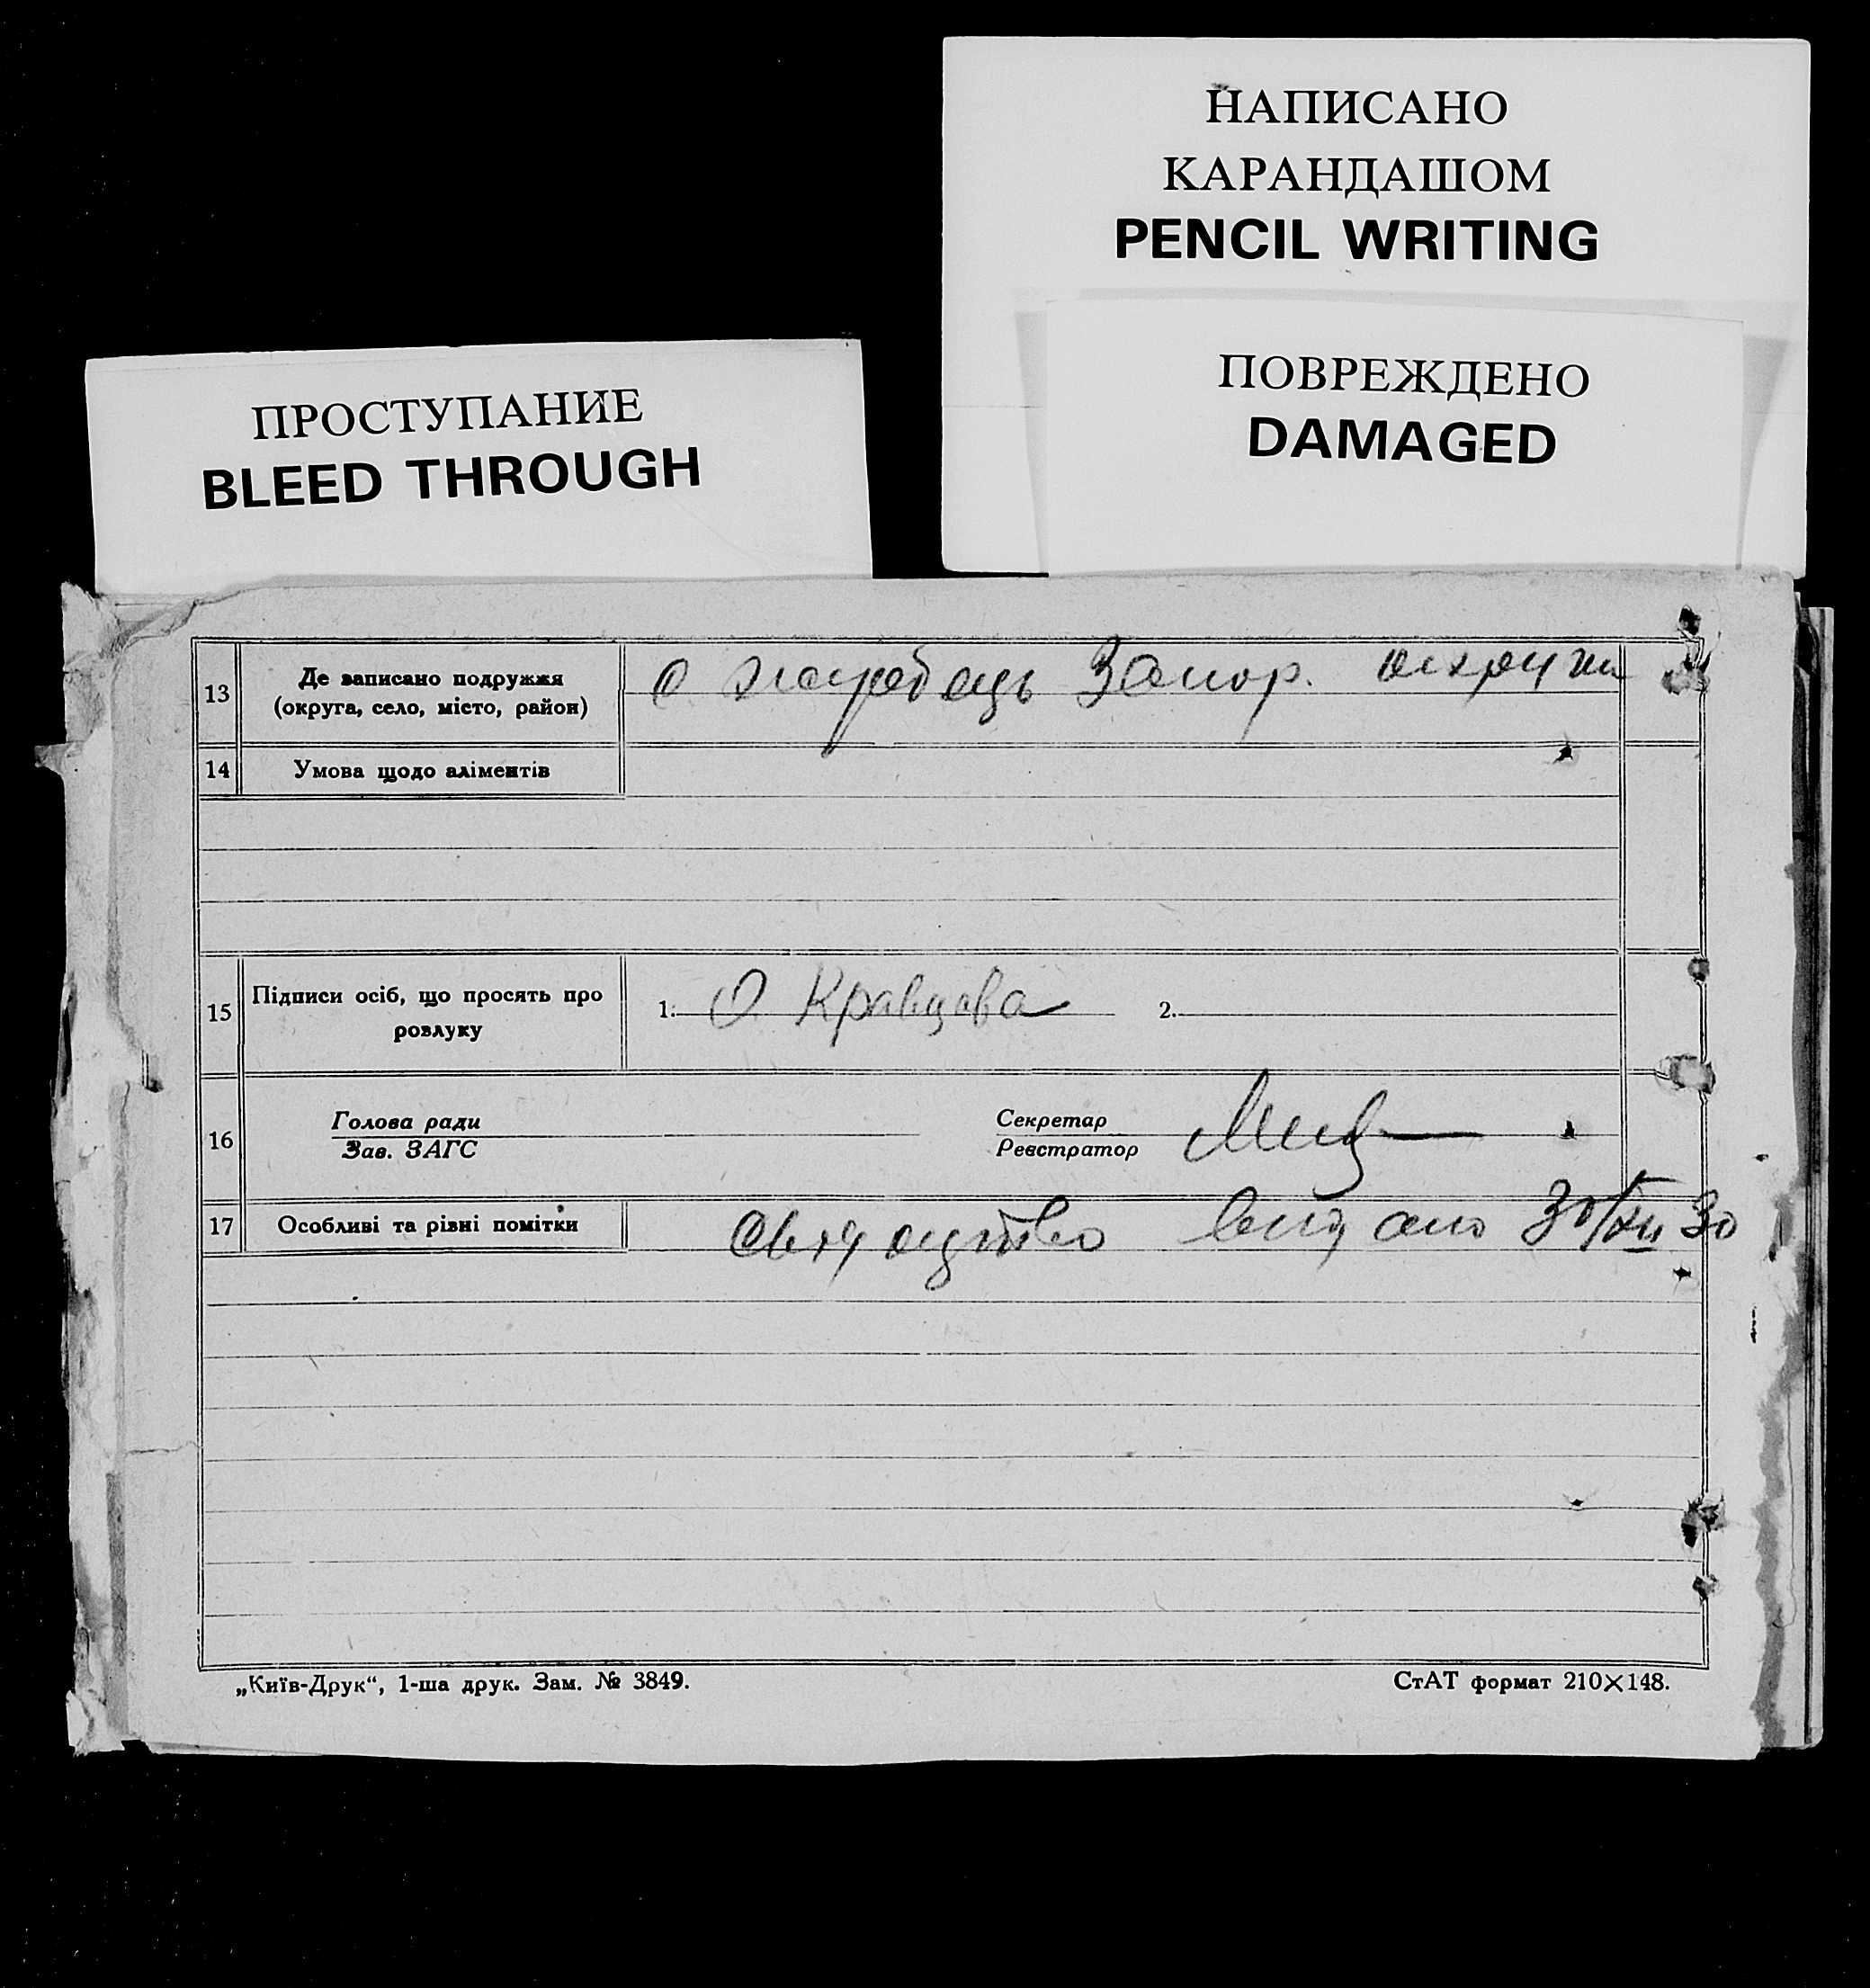 НАПИСАНО
КАРАНДАШОМ
PENCIL WRITING
ПОВРЕЖДЕНО
DAMAGED
ПРОСТУПАНИЕ
BLEED THROUGH
13 Де записано подружжя (округа, село, місто, район) с Жеребець Запор. округи
14 Умова щодо аліментів
15 Підписи осіб, що просять про розлуку 1. О Кравцова 2.
16 Голова ради Секретар
Зав. ЗАГС Реєстратор
17 Особливі та різні помітки видано 30/XII 30
„Київ-Друк“, 1-ша друк. Зам. № 3849. СтАТ формат 210×148.